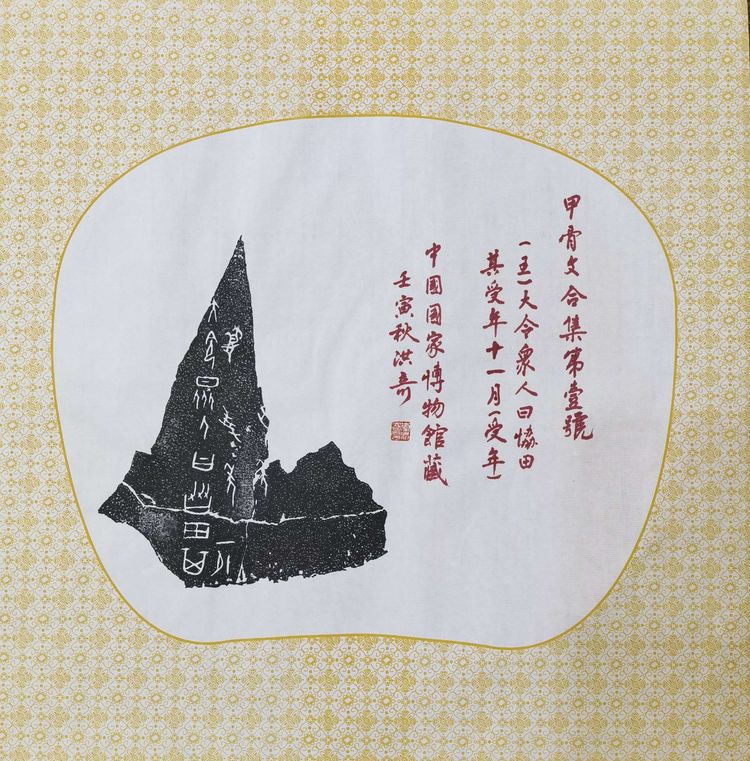 甲骨文合集第壹號
(王)大令衆人曰協田
其受年十一月(受年)
中國國家博物館藏
壬寅秋洪奇